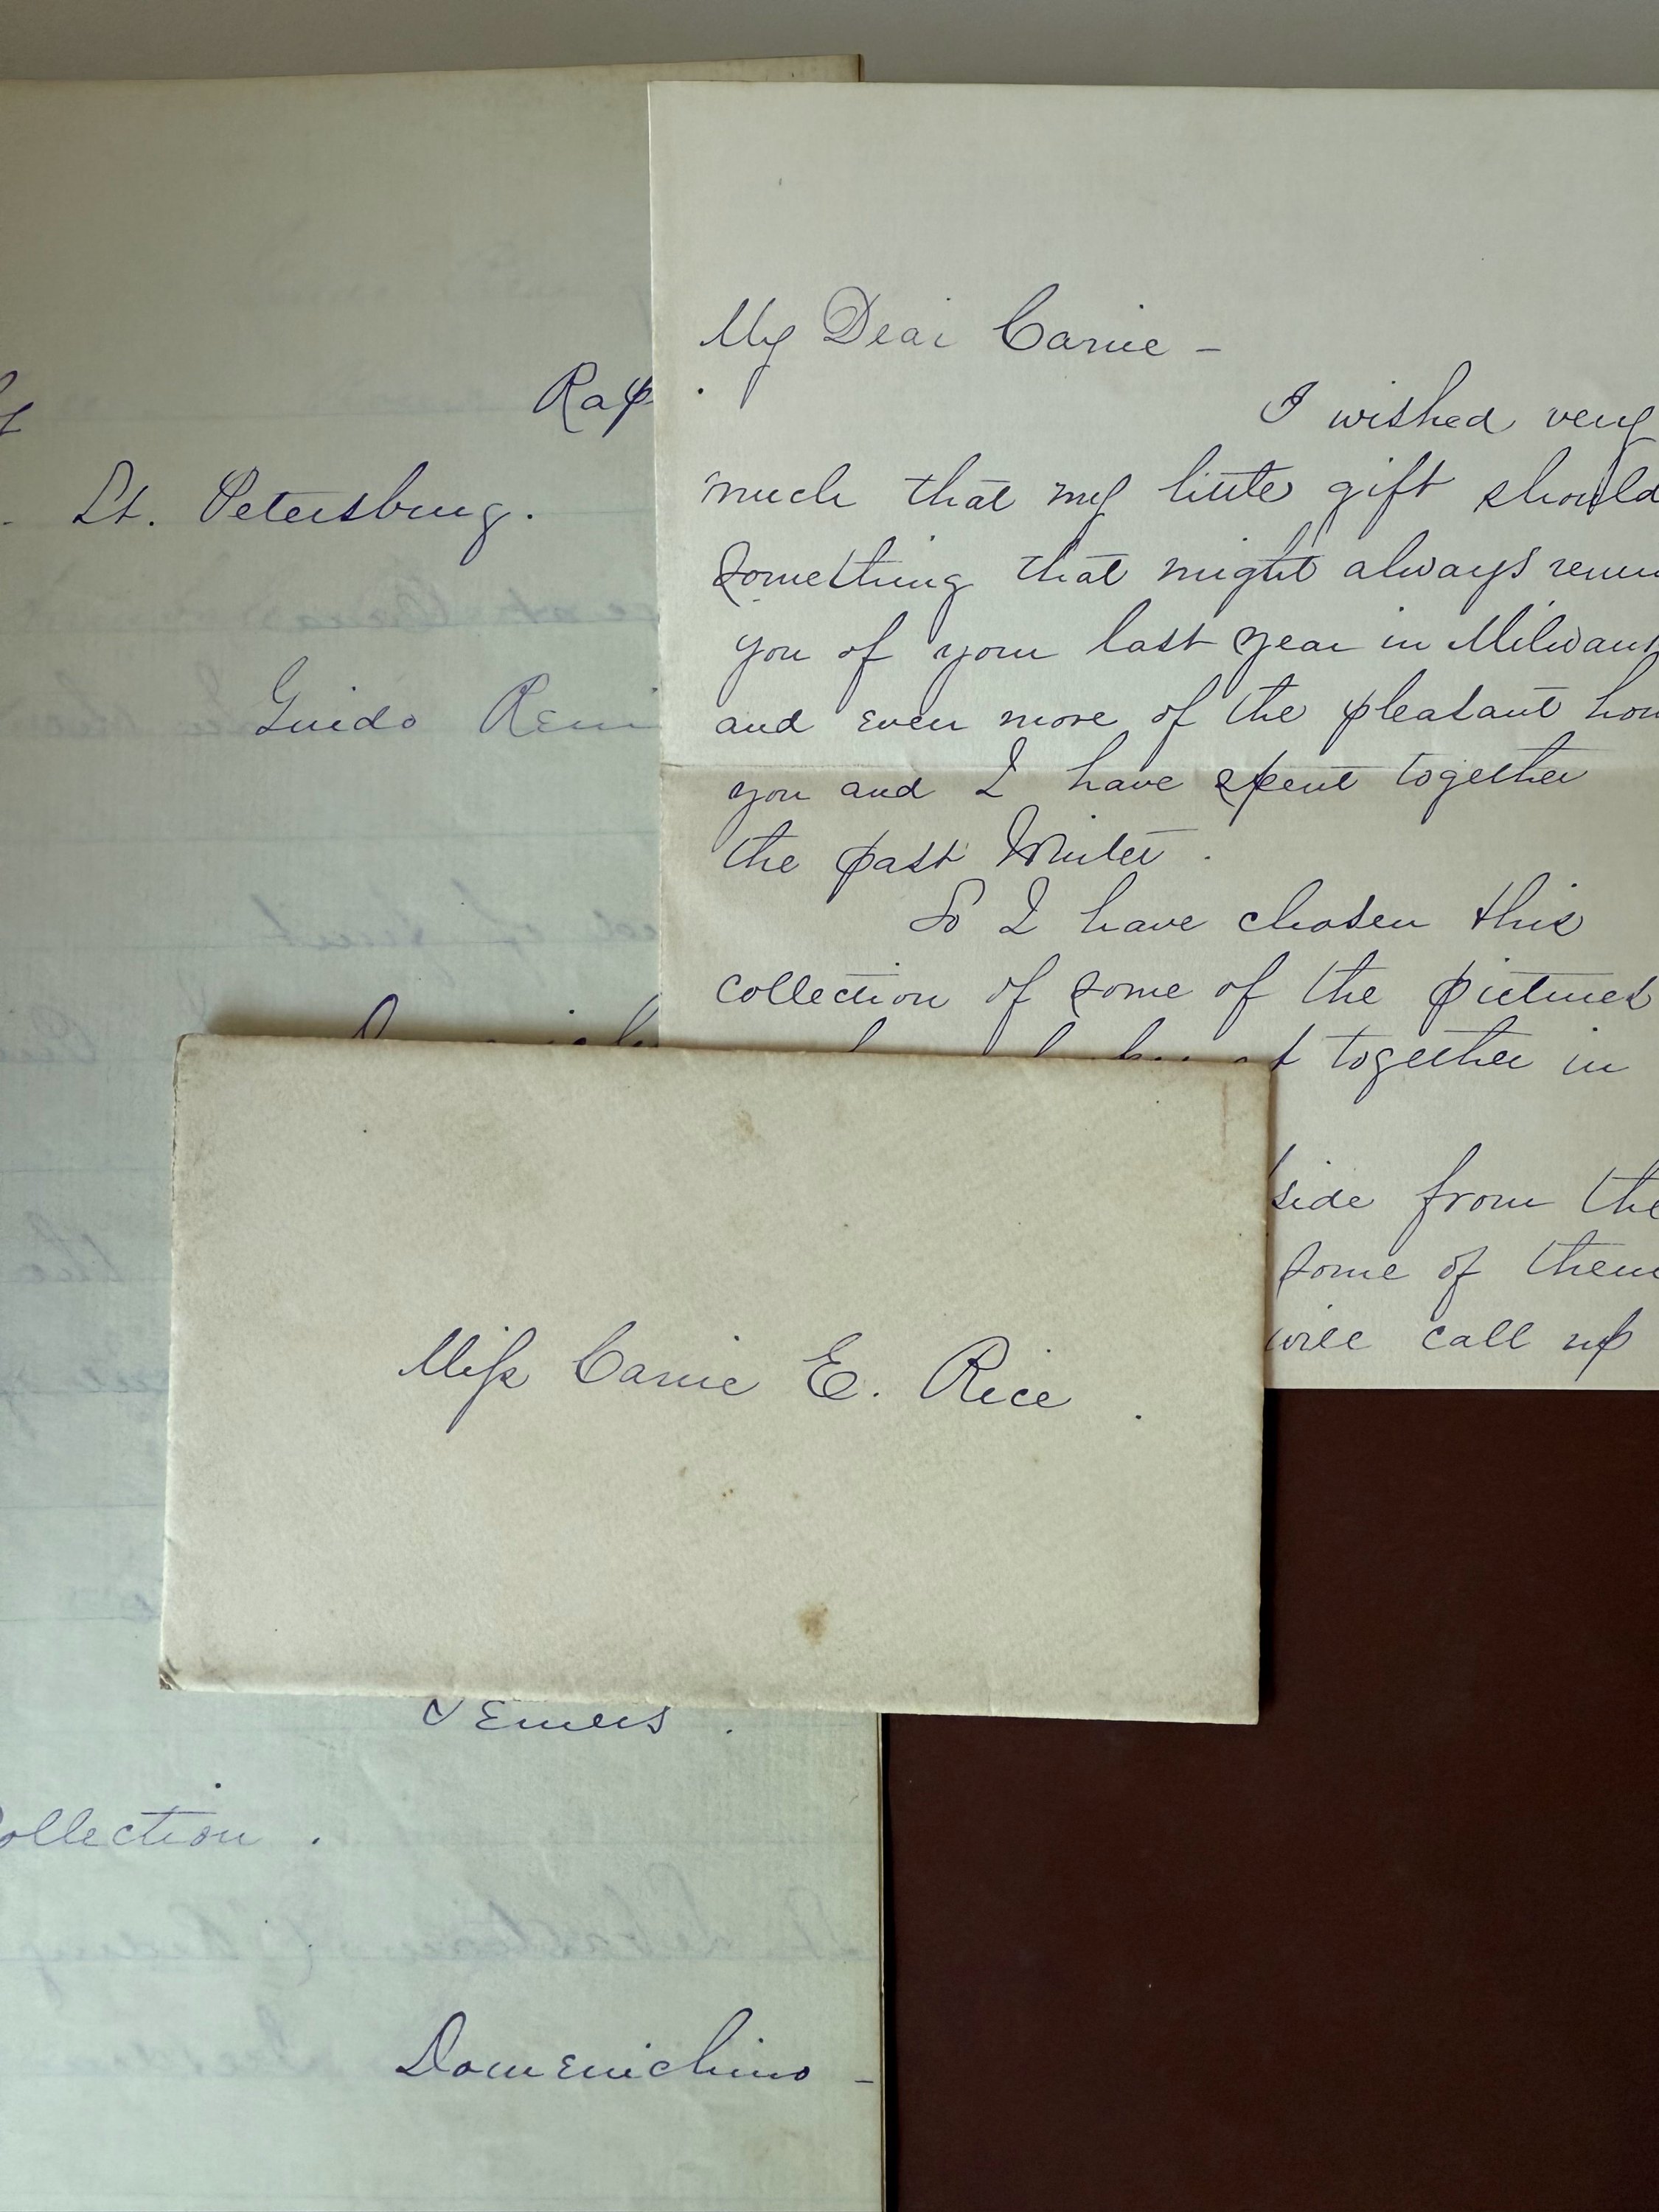 Rap
St. Petersburg.
Guido Reni
Teniers.
Collection.
Domenichino -
My Dear Carrie -
I wished very
much that my little gift should
something that might always remin
you of your last year in Milwauk
and even more of the pleasant hou
you and I have spent together
the past Winter.
So I have chosen this
collection of some of the pictures
together in
side from the
some of them
will call up
Miss Carrie E. Rice.